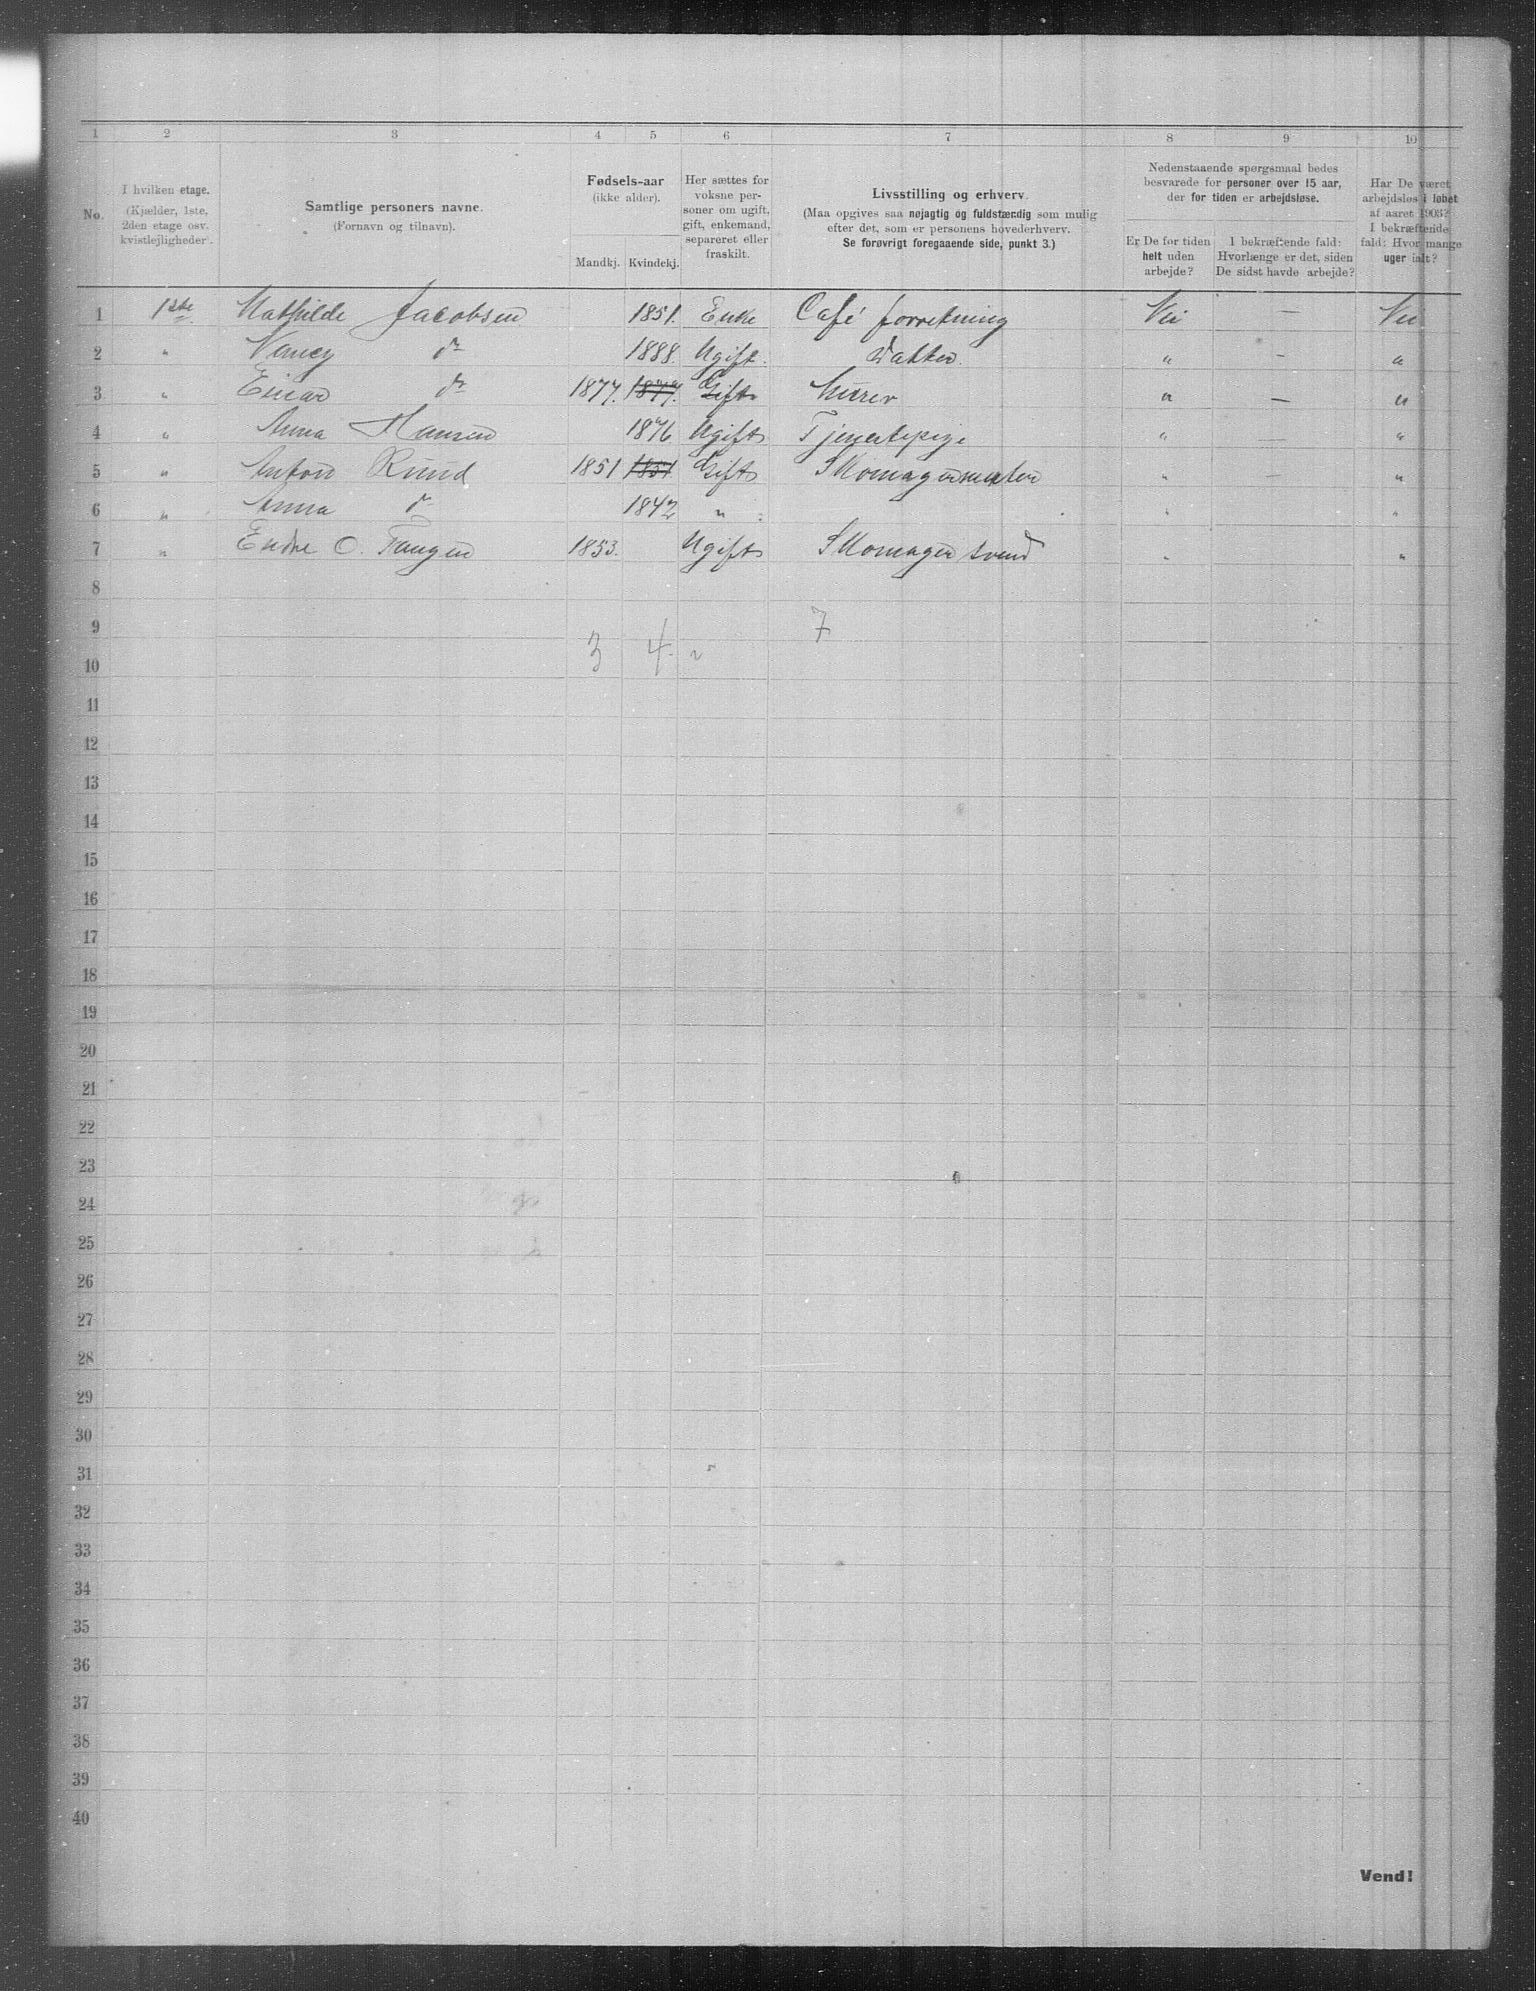 1 2 3 4 5 6 7 8 9 10
No.
I hvilken etage.
(Kjælder, 1ste,
2den etage osv.
kvistlejligheder).
Samtlige personers navne.
(Fornavn og tilnavn).
Fødsels-aar
(ikke alder).
Mandkj. Kvindekj.
Her sættes for
voksne per-
soner om ugift,
gift, enkemand,
separeret eller
fraskilt.
Livsstilling og erhverv.
(Maa opgives saa nøjagtig og fuldstændig som mulig
efter det, som er personens hovederhverv.
Se forøvrigt foregaaende side, punkt 3.)
Nedenstaaende spørgsmaal bedes
besvarede for personer over 15 aar,
der for tiden er arbejdsløse.
Er De for tiden
helt uden
arbejde?
I bekræftende fald:
Hvorlænge er det, siden
De sidst havde arbejde?
Har De været
arbejdsløs i løbet
af aaret 1903?
I bekræftende
fald: Hvor mange
uger ialt?
1 1ste Mathilde Jacobsen 1851. Enke Café forretning Nei — Nei
2 " Nancy do 1888. Ugift. Datter. " - "
3 " Einar do 1877. 1877. Gift Murer " — "
4 " Anna Hansen 1876 Ugift Tjenestepige " — "
5 " Anton Ruud 1851 1851 Gift Skomagermester " — "
6 " Anna do 1842 " " "
7 " Endre O. Faugen 1853. Ugift Skomager svend " "
8
9 7
10 3 4
11
12
13
14
15
16
17
18
19
20
21
22
23
24
25
26
27
28
29
30
31
32
33
34
35
36
37
38
39
40
Vend!